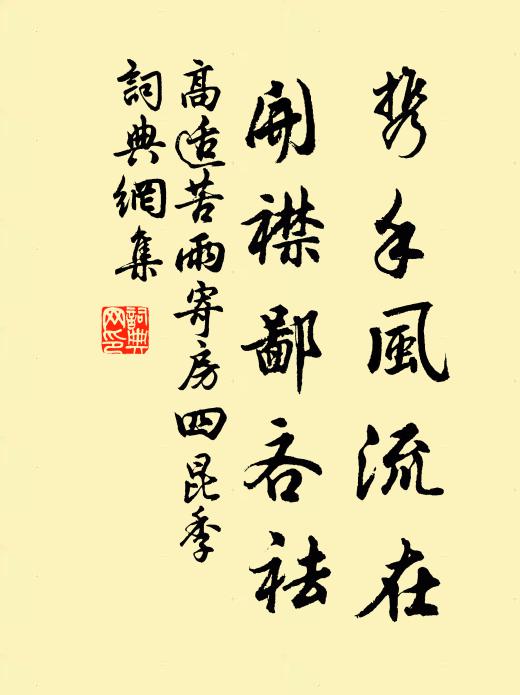 携手風流在
開襟鄙吝祛
高适苦雨寄房四昆季
詞典網集
詞典網印